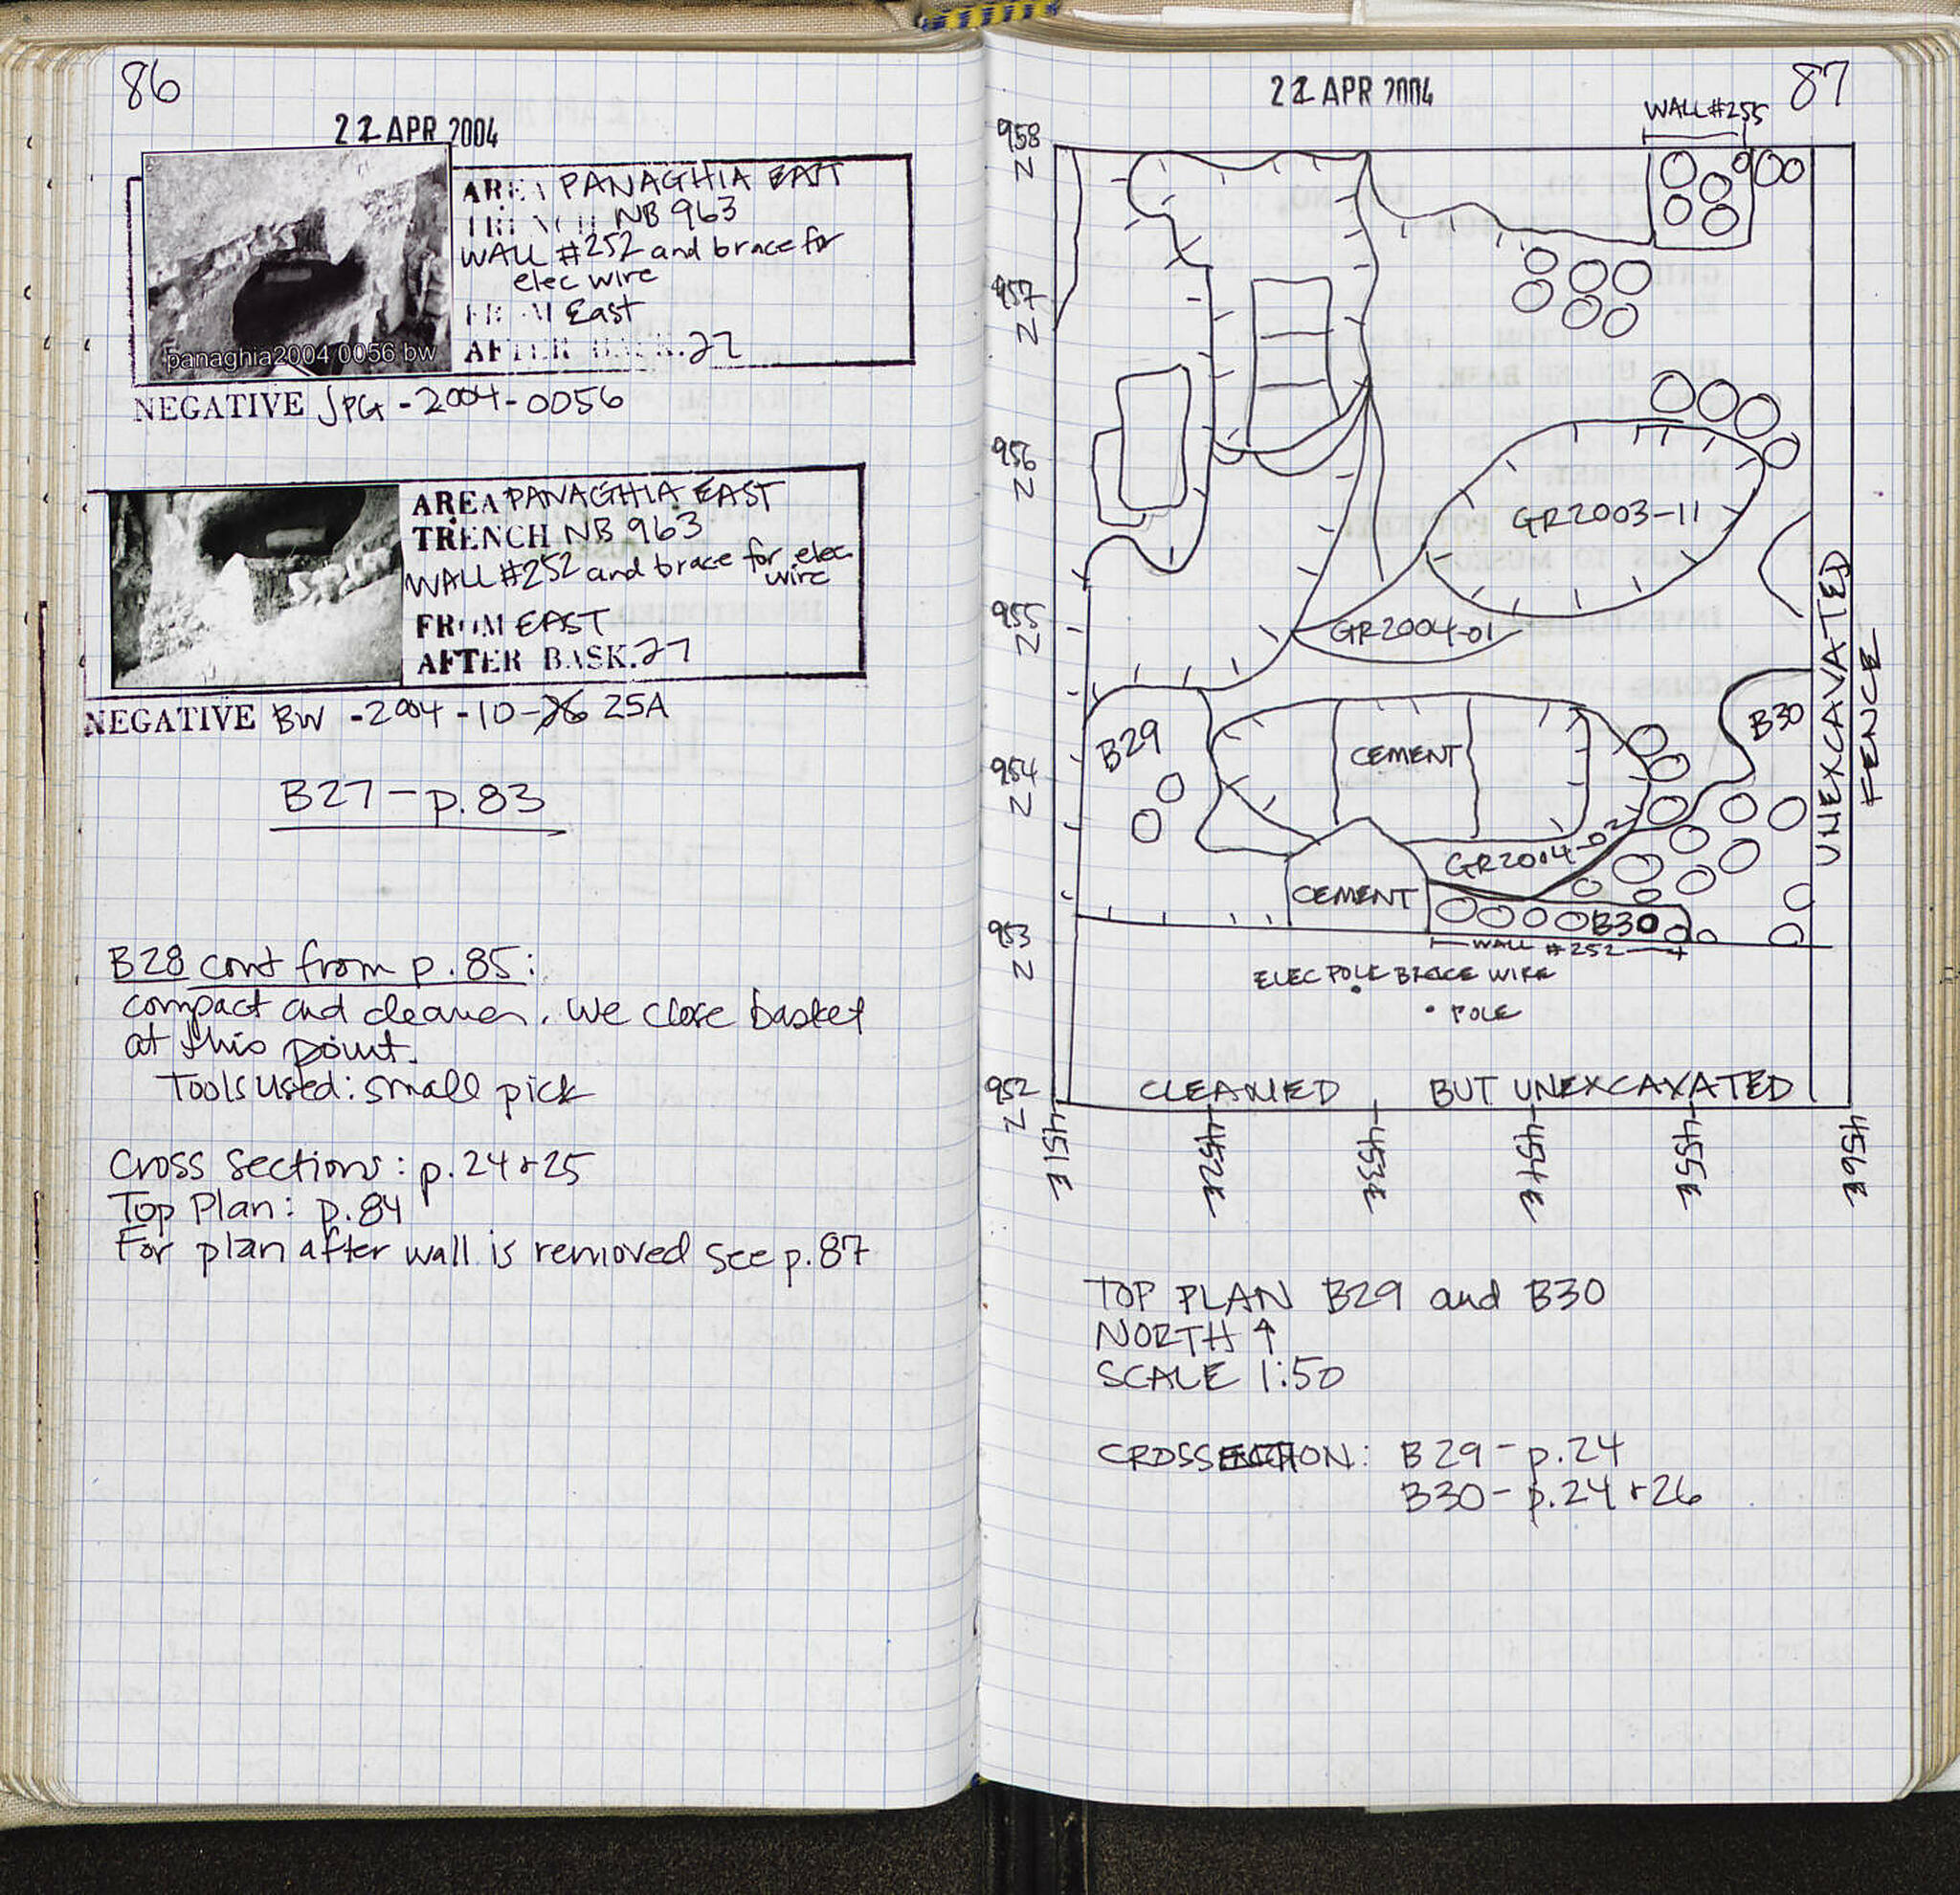 86
22 APR 2004
AREA PANAGHIA EAST
TRENCH NB 963
WALL #252 and brace for
elec wire
FROM East
AFTER BASK. 27
panaghia2004 0056 bw
NEGATIVE JPG-2004-0056
AREA PANAGHIA EAST
TRENCH NB 963
WALL #252 and brace for elec
wire
FROM EAST
AFTER BASK. 27
NEGATIVE BW-2004-10-26 25A
B27-p.83
B28 cont from p.85:
compact and cleaner. We close basket
at this point.
Tools used: small pick
Cross Sections: p.24+25
Top Plan: p.84
For plan after wall is removed see p.87
87
22 APR 2004
WALL #255
958
N
957
N
956
N
GR2003-11
955
N
GR2004-01
UNEXCAVATED
FENCE
B29
B30
954
N
CEMENT
GR2004-02
CEMENT
B30
953
N
WALL #252
ELEC POLE BRACE WIRE
POLE
952
N
CLEANED BUT UNEXCAXATED
451E
452E
453E
454E
455E
456E
TOP PLAN B29 and B30
NORTH ↑
SCALE 1:50
CROSSECTION: B29-p.24
B30-p.24+26